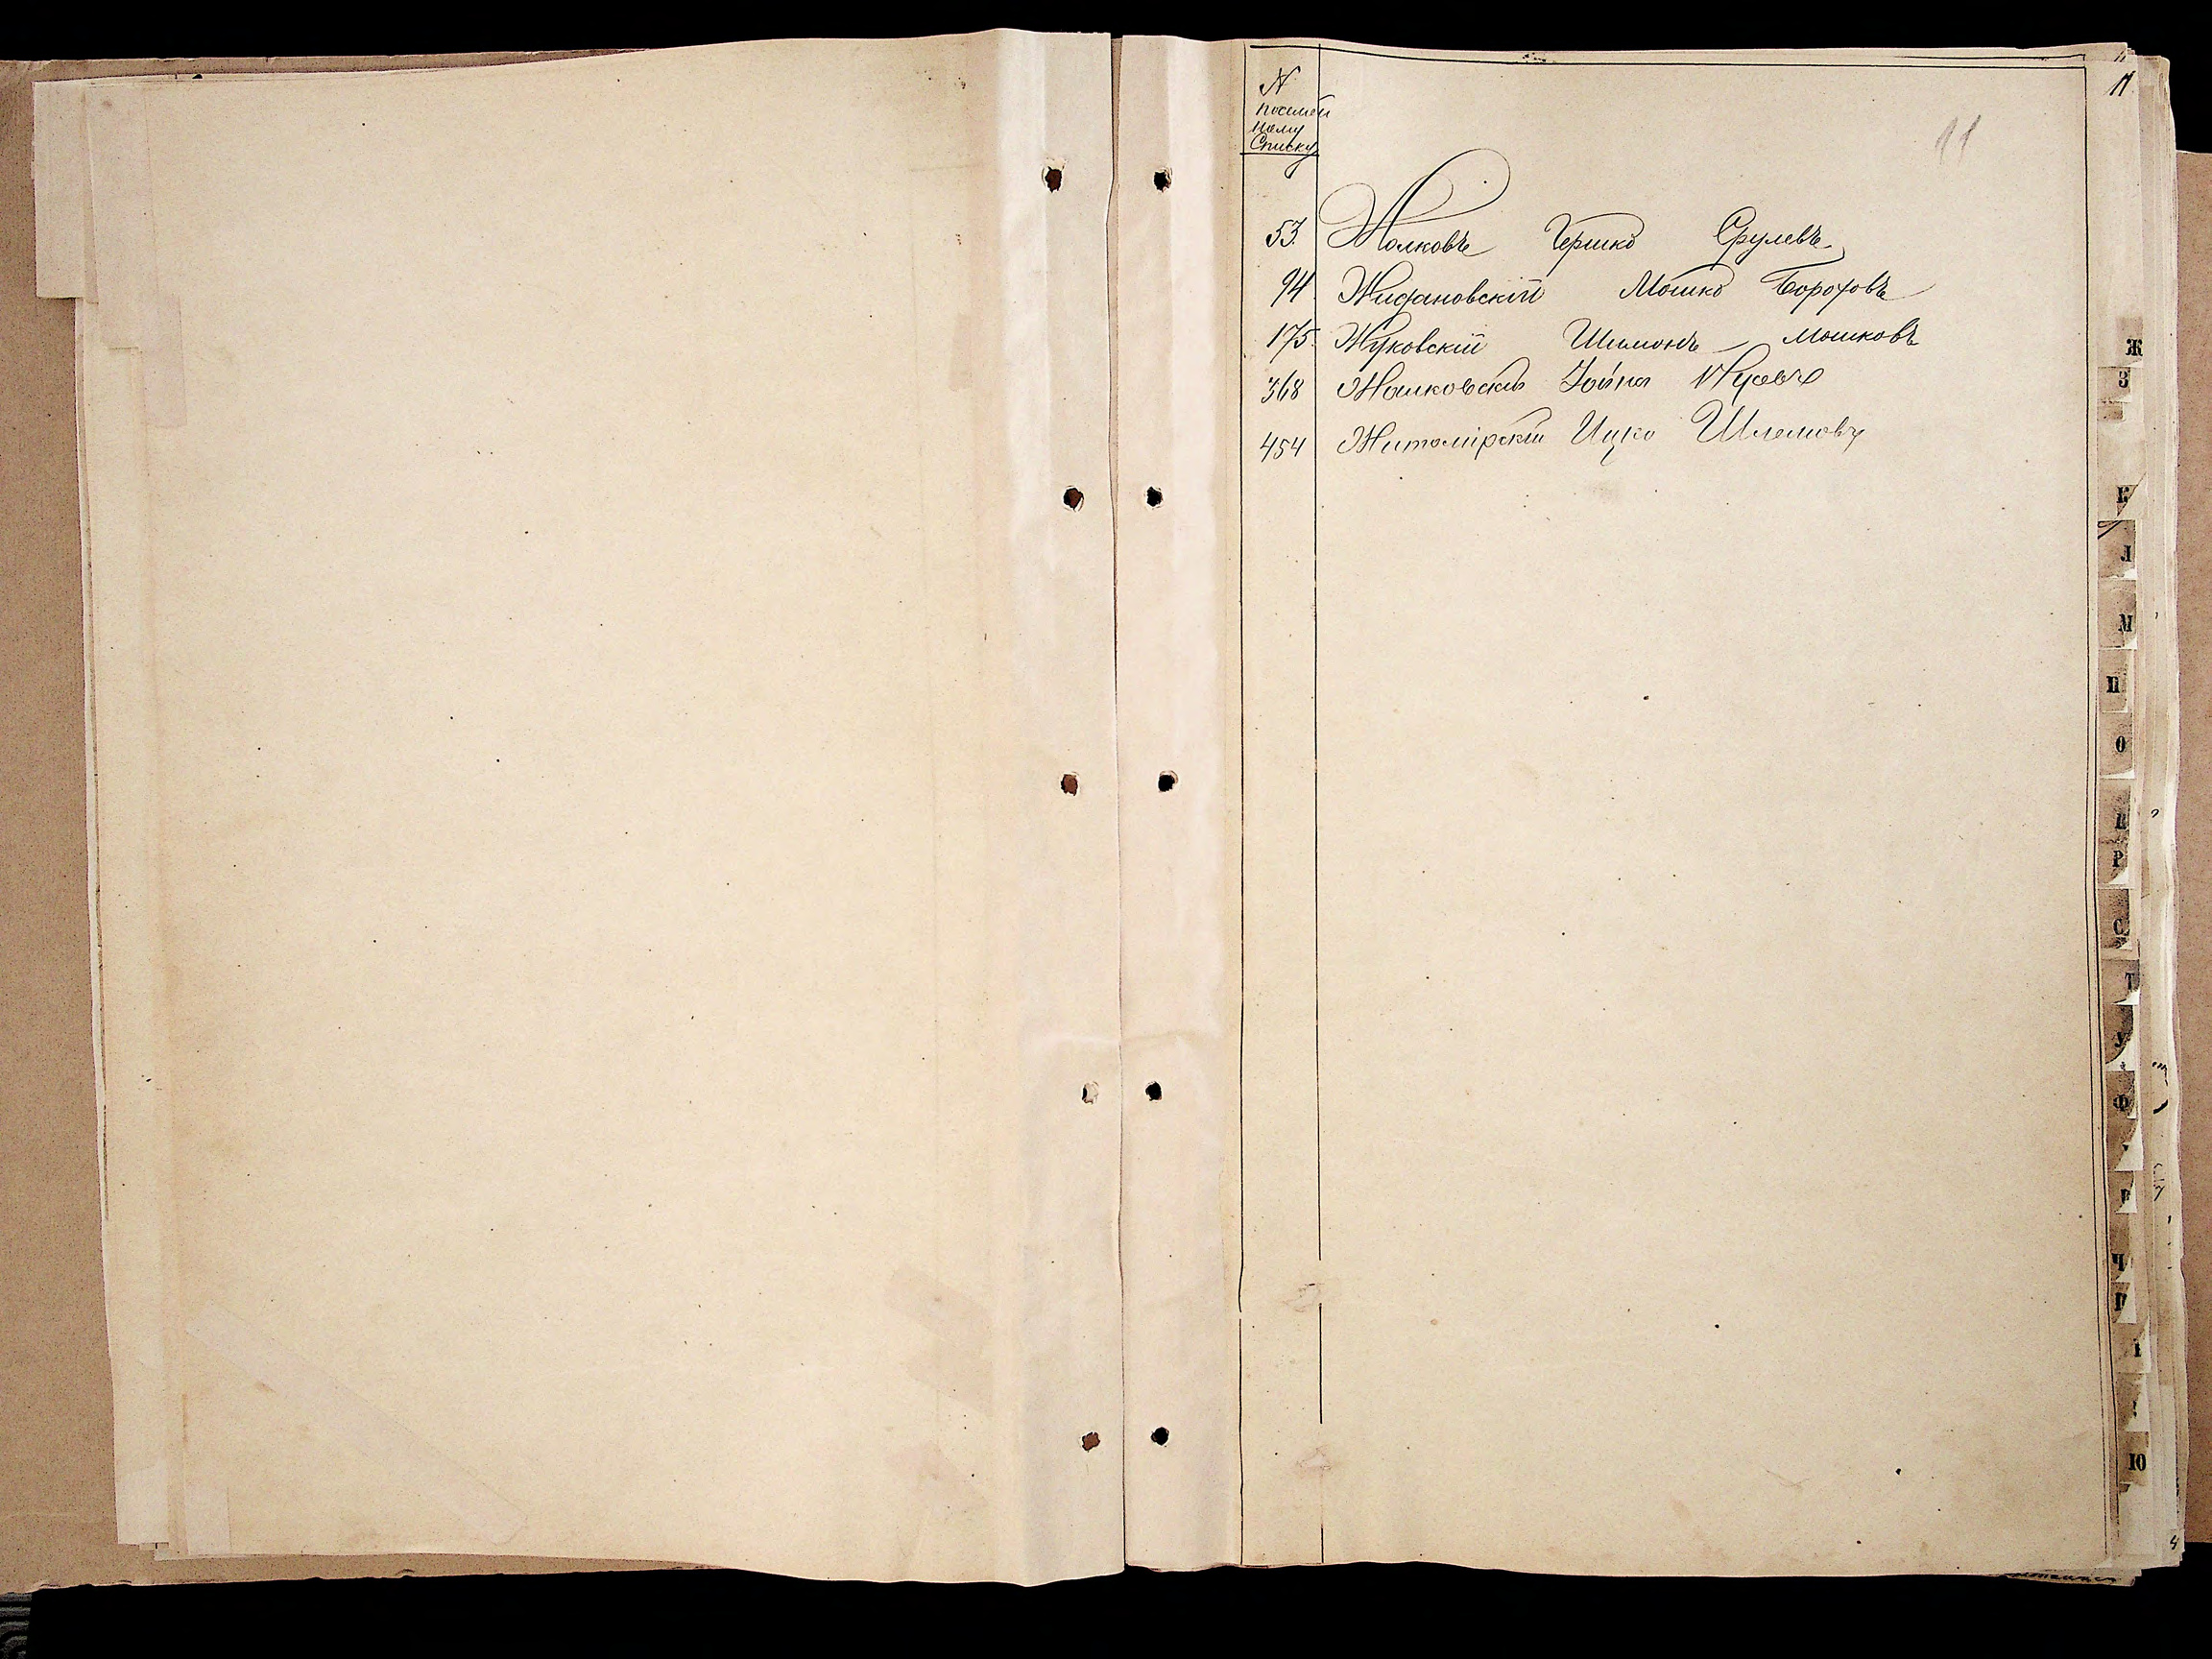 11
N
посемей
ному
Списку
11
53. Жолковъ Гершко Срулевъ
94. Жидановскій Мошко Бороховъ
175. Жуковскій Шимонъ Мошковъ
368 Жолковскій Хаимъ
454 Житомірскій Ицко Шлемовъ
Ж
З
К
Л
М
О
Р
С
Т
У
Ф
Ч
Ю